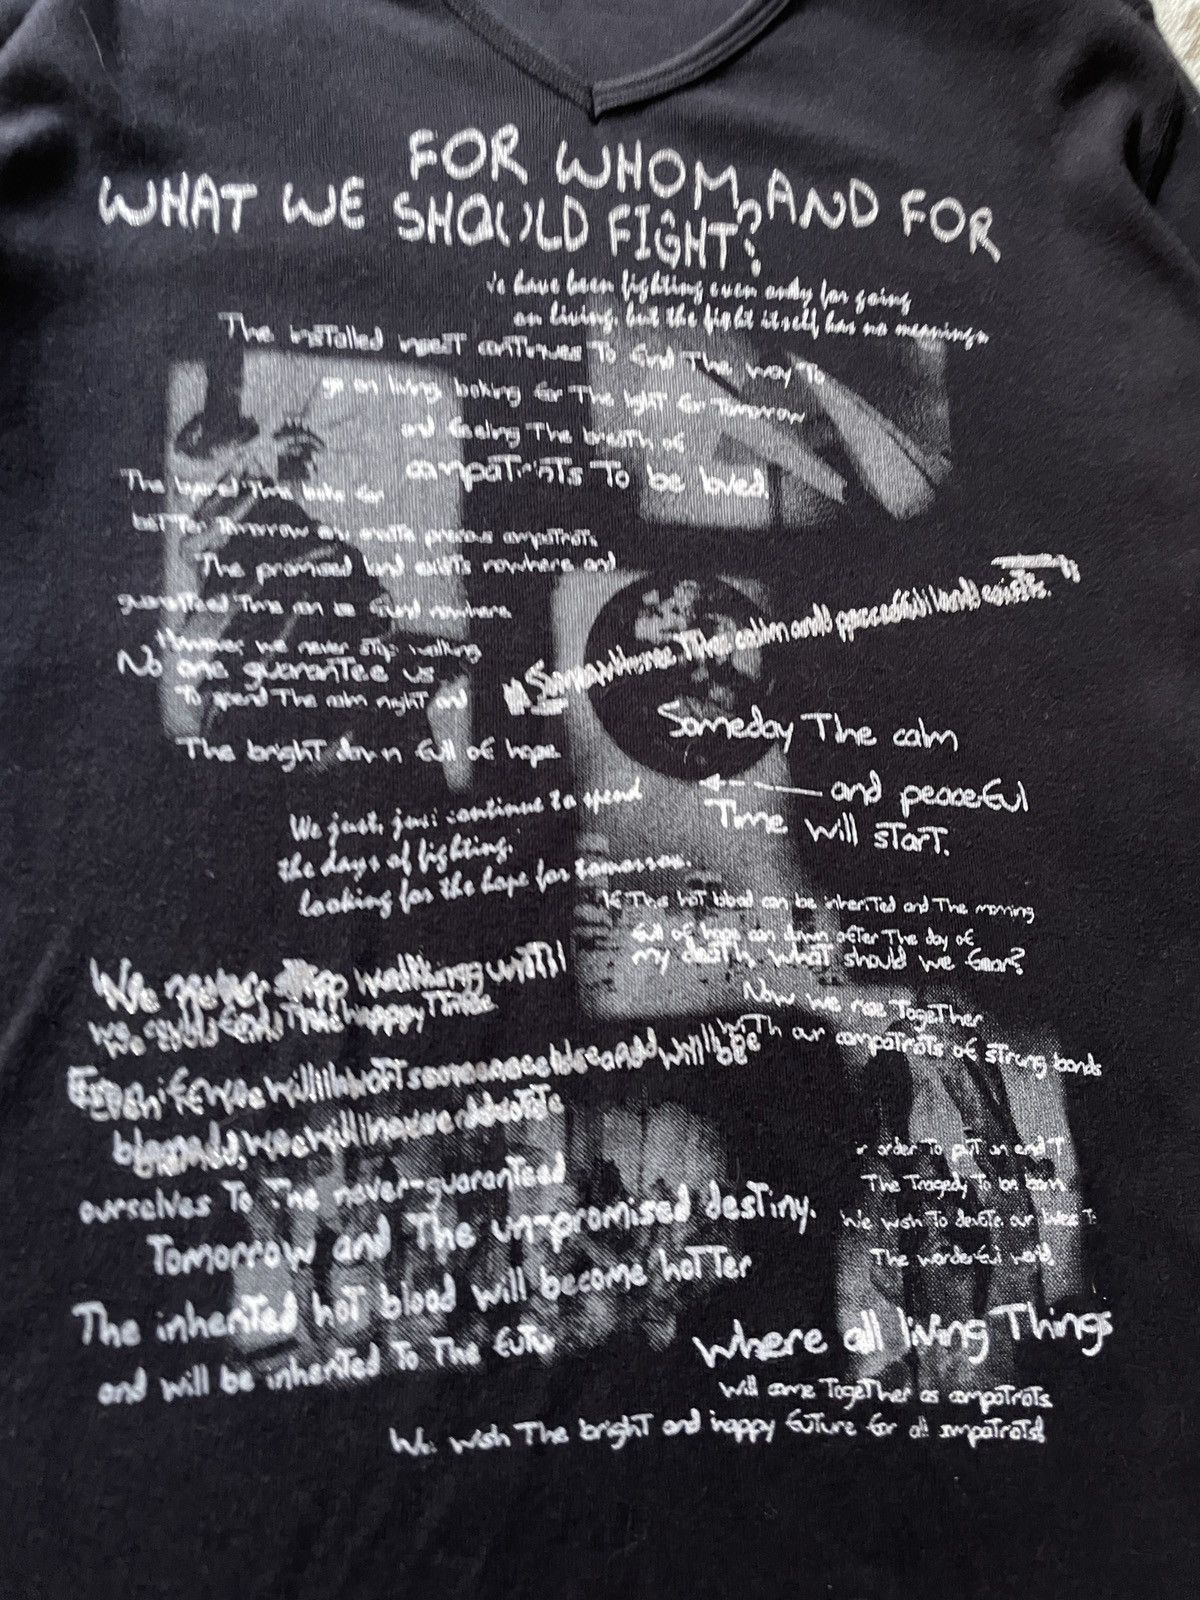 FOR WHOM, AND FOR
WHAT WE SHOULD FIGHT?
have been fighting even only for going
on living. but the fight itself has no meanings
The installed insect continues To find The way To
go on living, looking for The light for Tomorrow
and feeling The breath of
compatriots To be loved.
The Time looks for
better Tomorrow and precious compatriots.
The promised land exists nowhere and
guaranteed Time can be found nowhere
However, we never stop walking
No one guarantee us
To spend The calm night and
The bright dawn full of hope
Somewhere The calm and peaceful land exists.
Someday The calm
and peaceful
Time will start.
We just, just continue to spend
the days of fighting.
looking for the hope for tomorrow.
If The hot blood can be inherited and The morning
full of hope can dawn after The day of
my death, what should we fear?
We never stop walking until
we could find The happy Time
Now we rise Together
with our compatriots of strong bonds
Even if we will hurt someone else and will be
blamed, we will never devote
ourselves To The never-guaranteed
Tomorrow and The un-promised destiny.
The inherited hot blood will become hotter
and will be inherited To The
order To put an end
The Tragedy To be born
We wish To devote our lives
The wonderful world,
where all living Things
will come Together as compatriots.
We wish The bright and happy future for all compatriots!